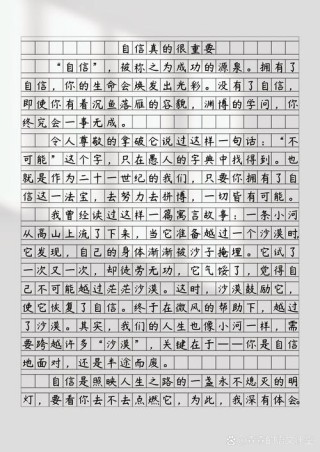 自信真的很重要
“自信”，被称之为成功的源泉。拥有了
自信，你的生命会焕发出光彩。没有了自信，
即使你有着沉鱼落雁的容貌，渊博的学问，你
终究会一事无成。
令人尊敬的拿破仑说过这样一句话：“不
可能”这个字，只在愚人的字典中找得到。也
就是作为二十一世纪的我们，只要你拥有了自
信这一法宝，去努力去拼博，一切皆有可能。
我曾经读过这样一篇寓言故事：一条小河
从高山上流了下来，当它准备越过一个沙漠时，
它发现，自己的身体渐渐被沙子掩埋。它试了
一次又一次，却徒劳无功，它气馁了，觉得自
己不可能越过茫茫沙漠。这时，沙漠鼓励它，
使它恢复了自信。终于在微风的帮助下，越过
了沙漠。其实，我们的人生也像小河一样，需
要跨越许多“沙漠”，关键在于——你是自信
地面对，还是半途而废。
自信是照映人生之路的一盏永不熄灭的明
灯，要看你去不去点燃它，为此，我深有体会。